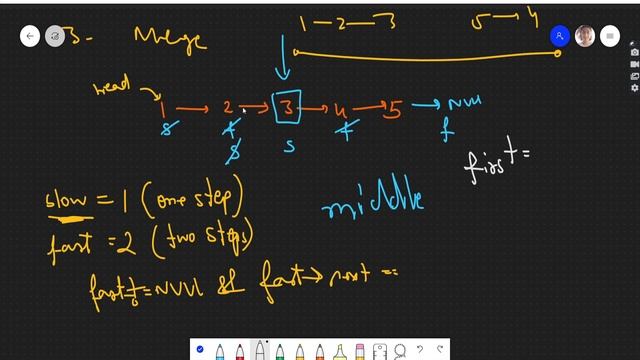 1 — 2 — 3 5 → 4
3- Merge
head
1 → 2 → 3 → 4 → 5 → NULL
s f f f
s s
slow = 1 (one step)
middle
first =
fast = 2 (two steps)
fast != NULL && fast → next ==